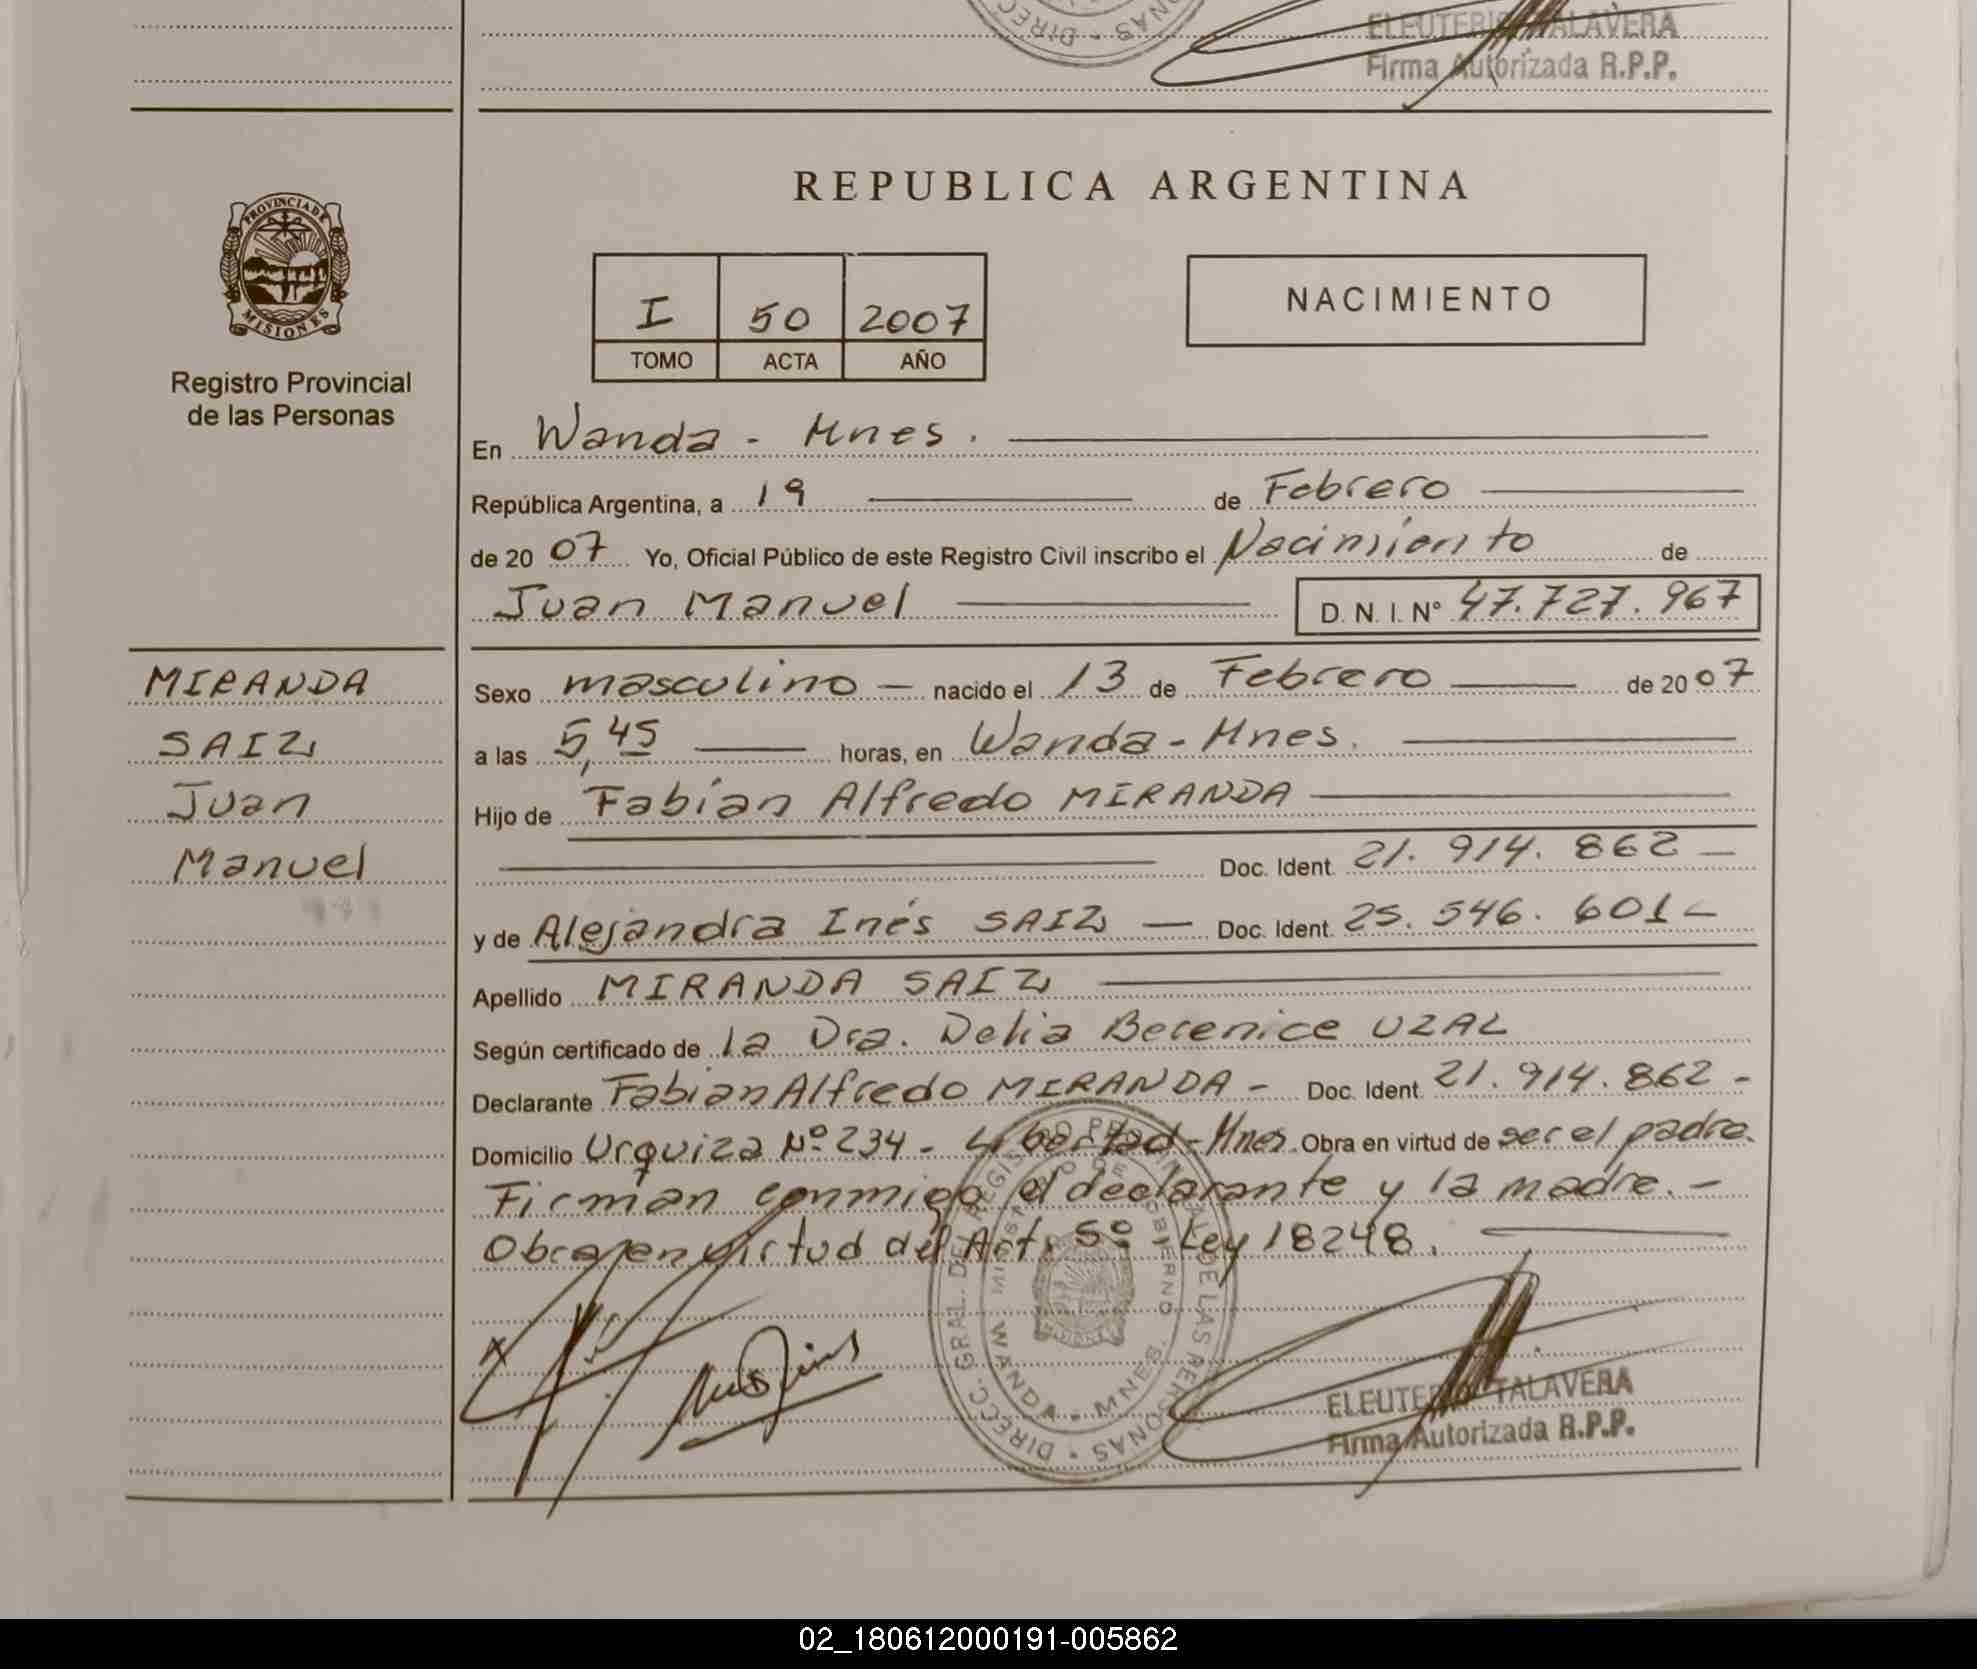 ELEUTERIO TALAVERA
Firma Autorizada R.P.P.
PROVINCIA DE
MISIONES
Registro Provincial
de las Personas
REPUBLICA ARGENTINA
I 50 2007
TOMO ACTA AÑO
NACIMIENTO
En Wanda - Mnes.
República Argentina, a 19 de Febrero
de 2007 Yo, Oficial Público de este Registro Civil inscribo el Nacimiento de
Juan Manuel D. N. I. N° 47.727.967
MIRANDA
SAIZ
Juan
Manuel
Sexo masculino nacido el 13 de Febrero de 2007
a las 5,45 horas, en Wanda - Mnes.
Hijo de Fabian Alfredo MIRANDA
Doc. Ident. 21.914.862
y de Alejandra Inés SAIZ Doc. Ident. 25.546.601
Apellido MIRANDA SAIZ
Según certificado de la Dra. Delia Berenice UZAL
Declarante Fabian Alfredo MIRANDA - Doc. Ident. 21.914.862 -
Domicilio Urquiza Nº 234 - Libertad - Mnes. Obra en virtud de ser el padre.
Firman conmigo el declarante y la madre. -
Obran en virtud del Art. 5º Ley 18248.
DIRECC. GRAL. DEL REGISTRO PROVINCIAL DE LAS PERSONAS
MINISTERIO DE GOBIERNO
WANDA - MNES.
ELEUTERIO TALAVERA
Firma Autorizada R.P.P.
02_180612000191-005862